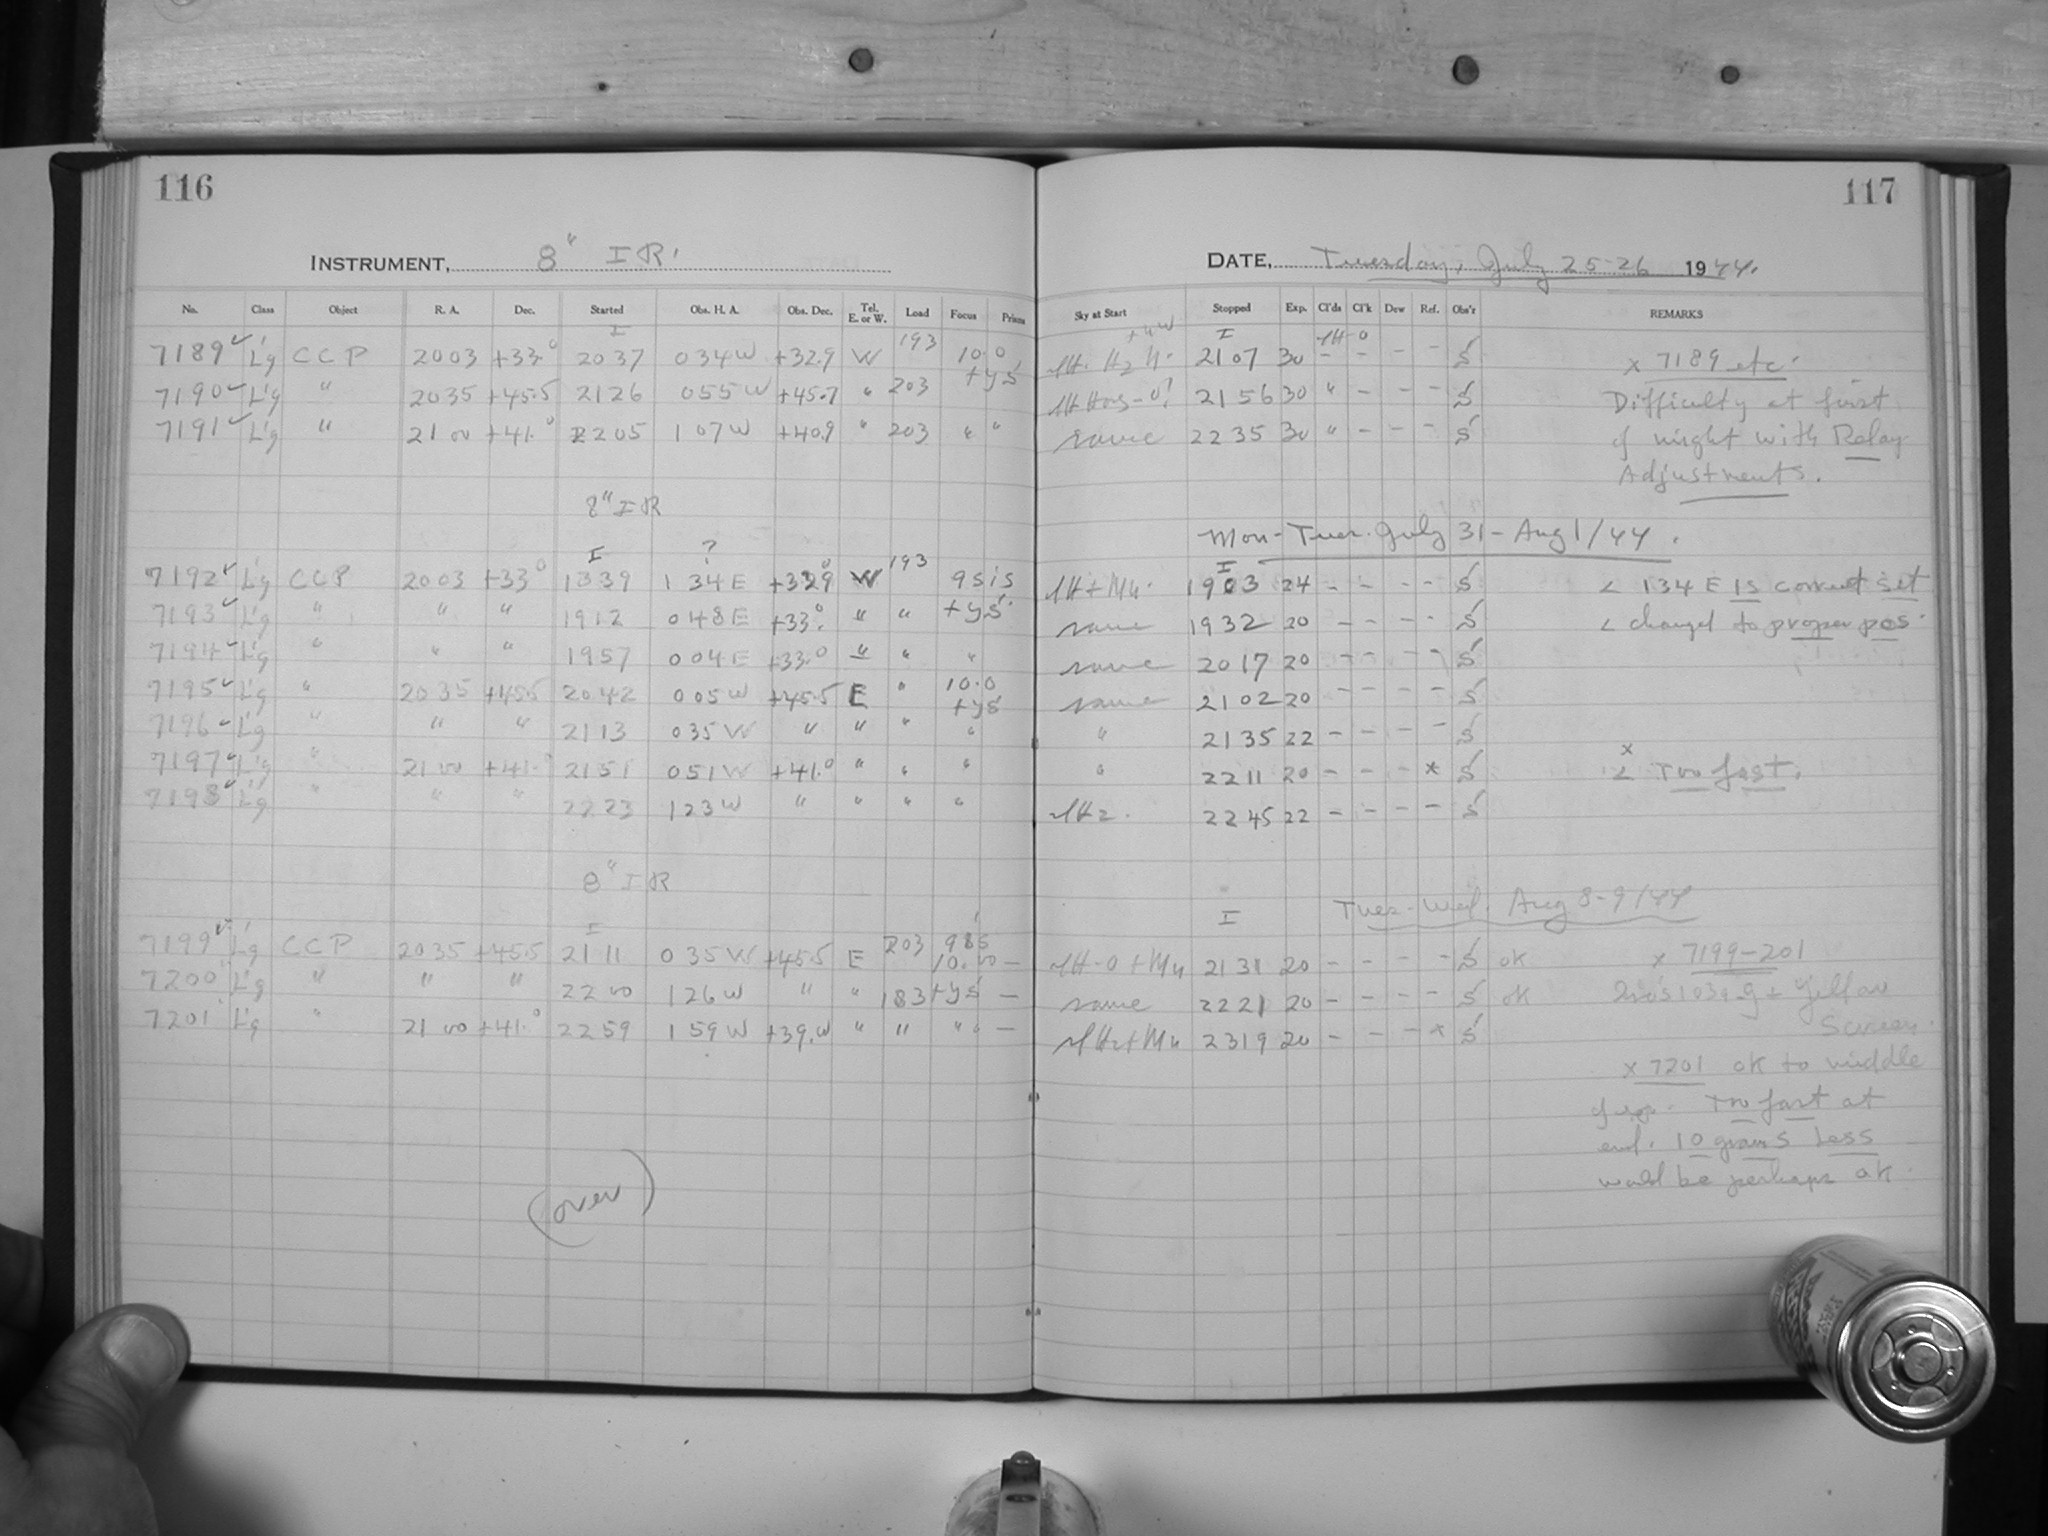 116
117
INSTRUMENT, 8" IR.
DATE, Tuesday, July 25-26 1944.
No. Class Object R. A. Dec. Started Obs. H. A. Obs. Dec. Tel. E. or W. Load Focus Prisms Sky at Start Stopped Exp. Cl'ds Cl'k Dew Ref. Obs'r REMARKS
I I
7189 ✓ L'g CCP 2003 +33.0 2037 034W +32.9 W 193 10.0 2107 30 - - - - S x 7189 etc.
7190 ✓ L'g " 2035 +45.5 2126 055W +45.7 " 203 +ys 2156 30 " - - - S Difficulty at first
7191 ✓ L'g " 2100 +41.0 2205 107W +40.9 " 203 " " same 2235 30 " - - - S of night with Relay
Adjustments.
8" IR Mon-Tues. July 31-Aug 1/44.
I ? I
7192 ✓ L'g CCP 2003 +33.0 1339 134E +32.9 W 193 1903 24 - - - - S < 134 E is correct set
7193 ✓ L'g " " " 1912 048E +33.0 " " +ys same 1932 20 - - - - S < changed to proper pos.
7194 ✓ L'g " " " 1957 004E +33.0 " " " same 2017 20 - - - - S
7195 ✓ L'g " 2035 +45.5 2042 005W +45.5 E " 10.0 +ys same 2102 20 - - - - S
7196 ✓ L'g " " " 2113 035W " " " " " 2135 22 - - - - S
7197 ✓ L'g " 2100 +41.0 2151 051W +41.0 " " " " 2211 20 - - - x S x < Too fast.
7198 ✓ L'g " " " 2223 123W " " " " 2245 22 - - - - S
8" IR Tues-Wed. Aug 8-9/44
I I
7199 ✓ L'g CCP 2035 +45.5 2111 035W +45.5 E 203 10.00 - 2131 20 - - - - S ok x 7199-201
7200 L'g " " " 2200 126W " " 183 +ys - same 2221 20 - - - - S ok Yellow
7201 L'g " 2100 +41.0 2259 159W " " " - 2319 20 - - - x S Screen.
x 7201 ok to middle
of exp. Too fast at
end. 10 grams less
would be perhaps ok.
(over)